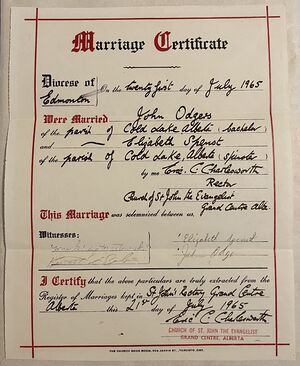 Marriage Certificate
Diocese of
Edmonton
On the twenty first day of July 1965
Were Married John Odgers
of the parish of Cold Lake, Alberta (bachelor)
and — Elizabeth
of the parish of Cold Lake, Alberta, (spinster)
by me Eric C Charlesworth
Rector
Church of St John the Evangelist
Grand Centre Alta.
This Marriage was solemnized between us,
Witnesses:
Elizabeth
John
I Certify that the above particulars are truly extracted from the
Register of Marriages kept in St John's Rectory Grand Centre
Alberta this 21st day of July 1965
Eric C Charlesworth
CHURCH OF ST. JOHN THE EVANGELIST
GRAND CENTRE, ALBERTA
THE CHURCH BOOK ROOM, TORONTO, ONT.